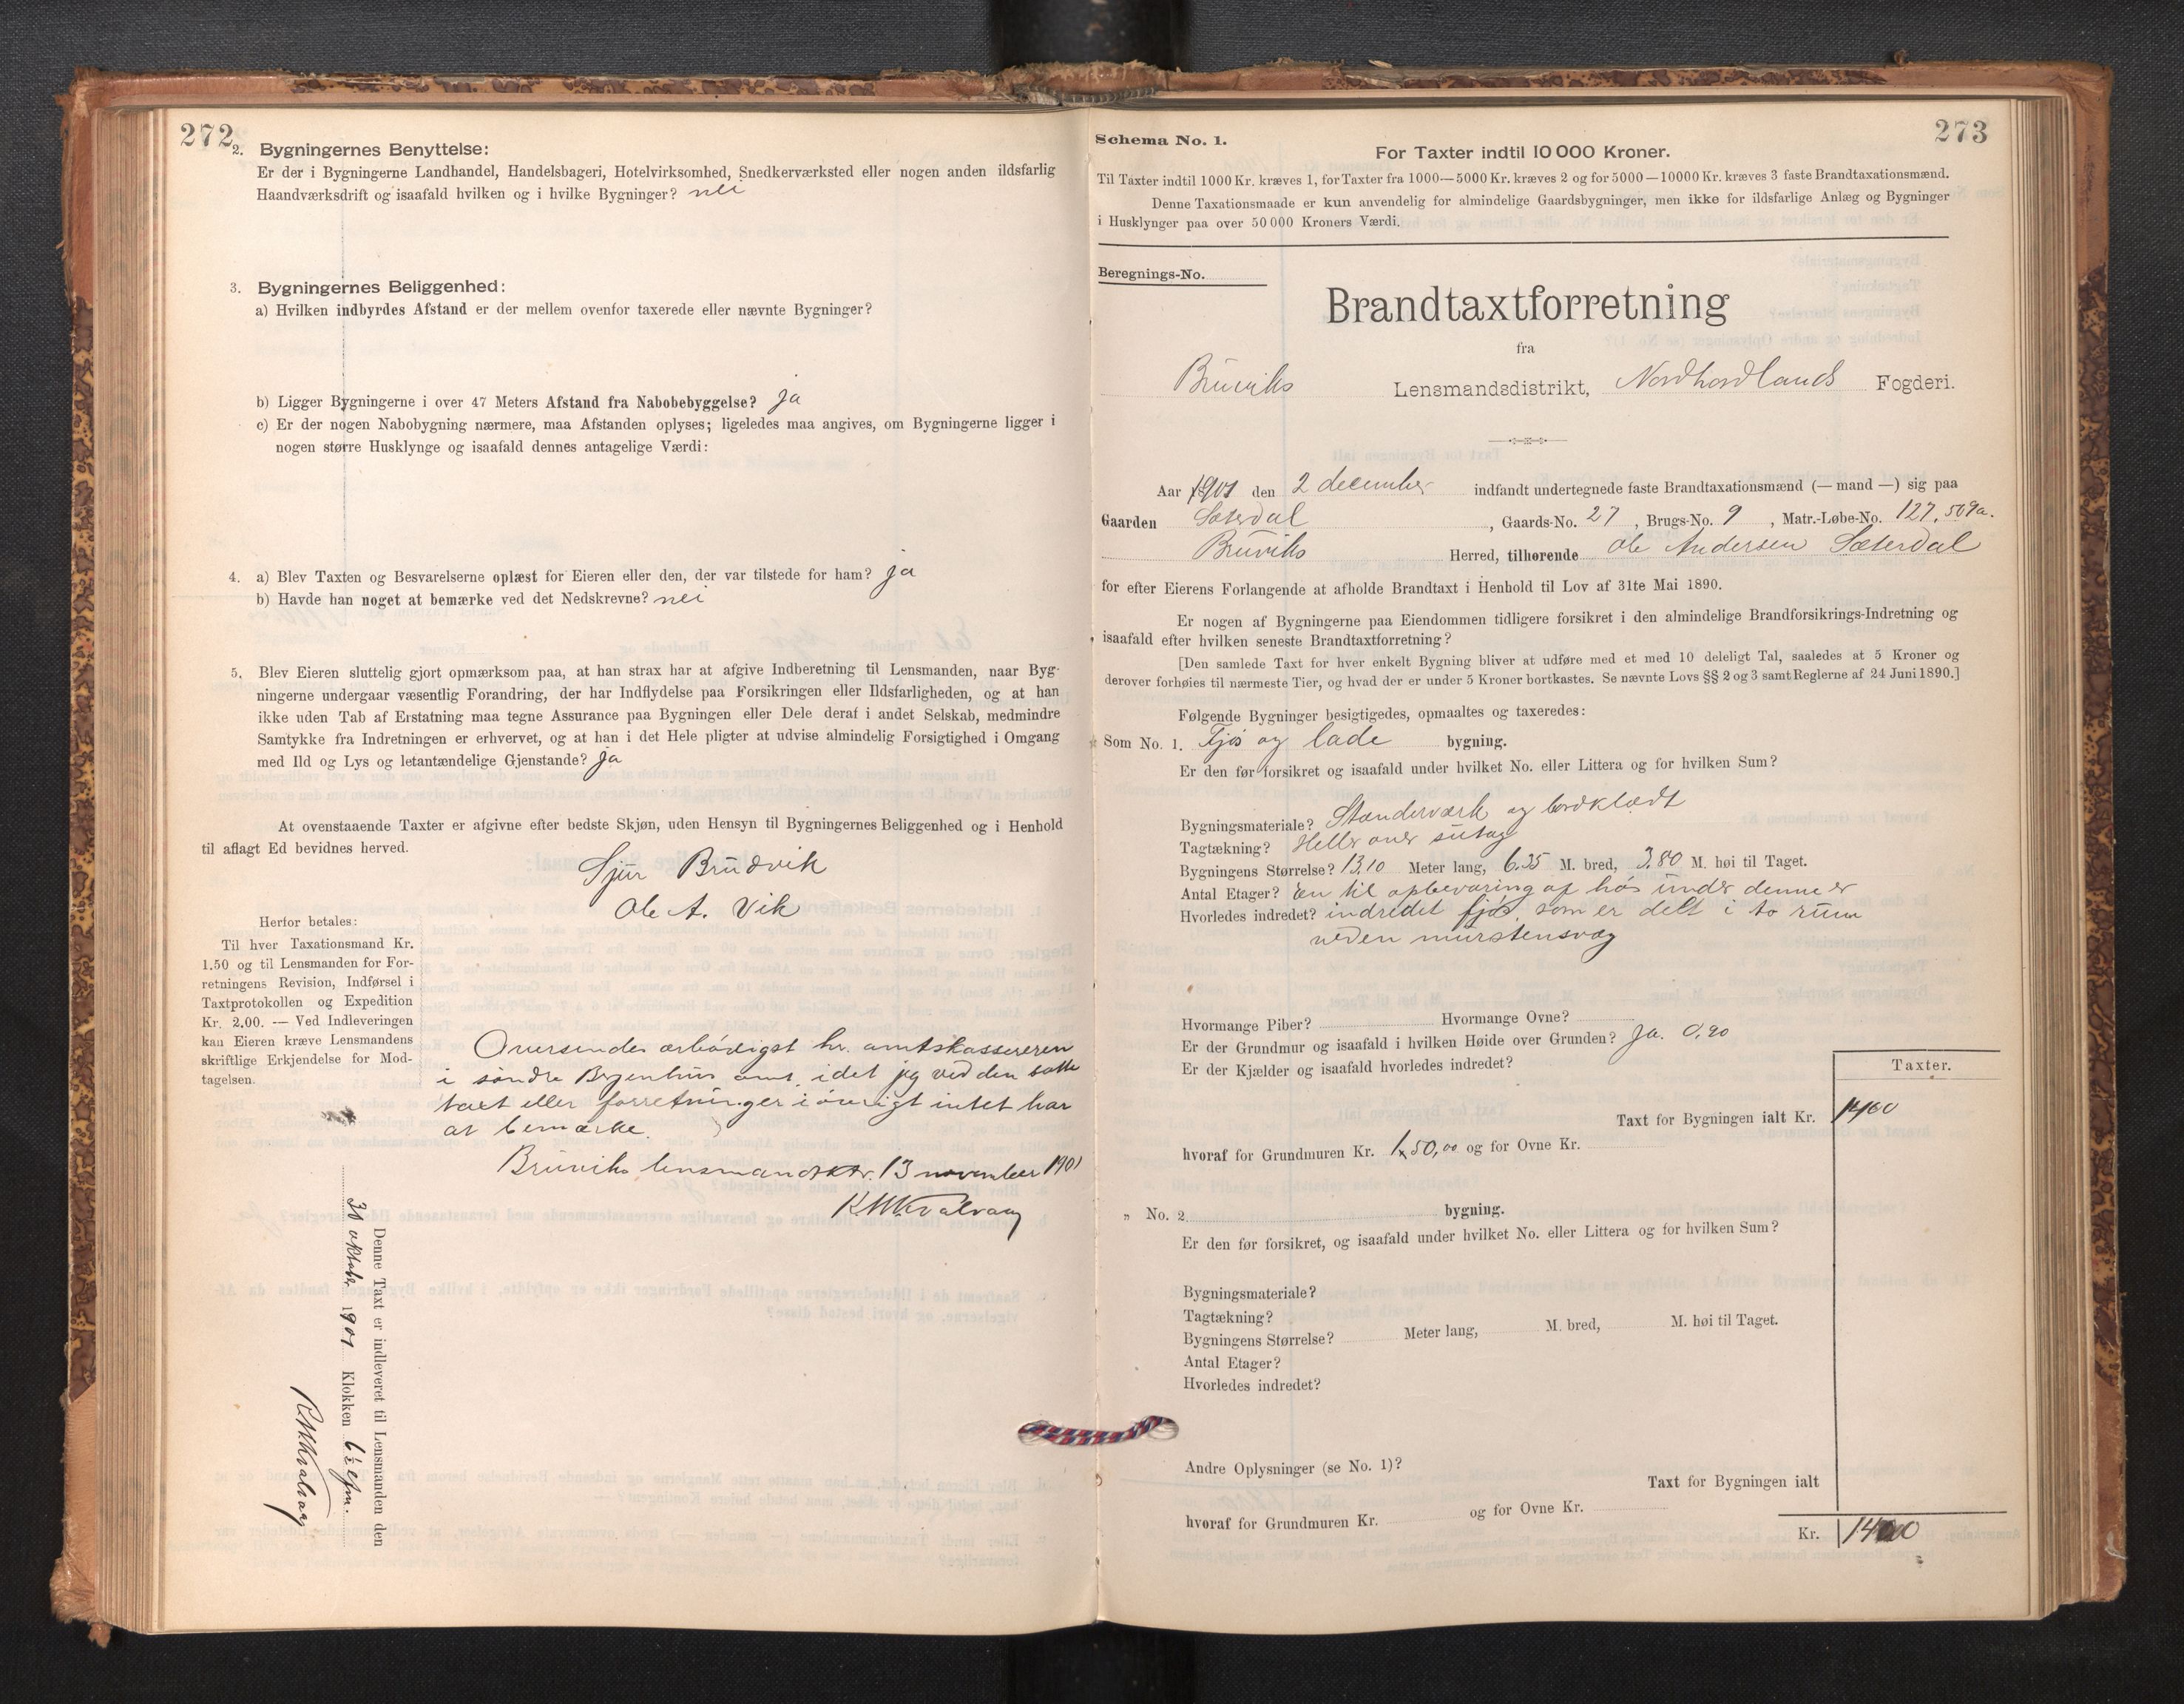 272
2. Bygningernes Benyttelse:
Er der i Bygningerne Landhandel, Handelsbageri, Hotelvirksomhed, Snedkerværksted eller nogen anden ildsfarlig
Haandværksdrift og isaafald hvilken og i hvilke Bygninger? nei
3. Bygningernes Beliggenhed:
a) Hvilken indbyrdes Afstand er der mellem ovenfor taxerede eller nævnte Bygninger?
b) Ligger Bygningerne i over 47 Meters Afstand fra Nabobebyggelse? ja
c) Er der nogen Nabobygning nærmere, maa Afstanden oplyses; ligeledes maa angives, om Bygningerne ligger i
nogen større Husklynge og isaafald dennes antagelige Værdi:
4. a) Blev Taxten og Besvarelserne oplæst for Eieren eller den, der var tilstede for ham? ja
b) Havde han noget at bemærke ved det Nedskrevne? nei
5. Blev Eieren sluttelig gjort opmærksom paa, at han strax har at afgive Indberetning til Lensmanden, naar Byg-
ningerne undergaar væsentlig Forandring, der har Indflydelse paa Forsikringen eller Ildsfarligheden, og at han
ikke uden Tab af Erstatning maa tegne Assurance paa Bygningen eller Dele deraf i andet Selskab, medmindre
Samtykke fra Indretningen er erhvervet, og at han i det Hele pligter at udvise almindelig Forsigtighed i Omgang
med Ild og Lys og letantændelige Gjenstande? ja
At ovenstaaende Taxter er afgivne efter bedste Skjøn, uden Hensyn til Bygningernes Beliggenhed og i Henhold
til aflagt Ed bevidnes herved.
Sjur Brudvik
Ole A. Vik
Herfor betales:
Til hver Taxationsmand Kr.
1.50 og til Lensmanden for For-
retningens Revision, Indførsel i
Taxtprotokollen og Expedition
Kr. 2.00. — Ved Indleveringen
kan Eieren kræve Lensmandens
skriftlige Erkjendelse for Mod-
tagelsen.
Oversendes ærbødigst hr. amtskassereren
i søndre Bergenhus amt, idet jeg ved den satte
taxt eller forretninger i øvrigt intet har
at bemærke.
Bruviks lensmandsktr. 13 november 1901
K M Kvalvaag
Denne Taxt er indleveret til Lensmanden den
31 oktober 1901 Klokken 6½ efm.
K M Kvalvaag
273
Schema No. 1.
For Taxter indtil 10 000 Kroner.
Til Taxter indtil 1000 Kr. kræves 1, for Taxter fra 1000—5000 Kr. kræves 2 og for 5000—10000 Kr. kræves 3 faste Brandtaxationsmænd.
Denne Taxationsmaade er kun anvendelig for almindelige Gaardsbygninger, men ikke for ildsfarlige Anlæg og Bygninger
i Husklynger paa over 50 000 Kroners Værdi.
Beregnings-No.
Brandtaxtforretning
fra
Bruviks Lensmandsdistrikt, Nordhordlands Fogderi.
Aar 1901 den 2 december indfandt undertegnede faste Brandtaxationsmænd (— mand —) sig paa
Gaarden Sæterdal, Gaards-No. 27, Brugs-No. 9, Matr.-Løbe-No. 127, 509a.
Bruviks Herred, tilhørende Ole Andersen Sæterdal
for efter Eierens Forlangende at afholde Brandtaxt i Henhold til Lov af 31te Mai 1890.
Er nogen af Bygningerne paa Eiendommen tidligere forsikret i den almindelige Brandforsikrings-Indretning og
isaafald efter hvilken seneste Brandtaxtforretning?
[Den samlede Taxt for hver enkelt Bygning bliver at udføre med et med 10 deleligt Tal, saaledes at 5 Kroner og
derover forhøies til nærmeste Tier, og hvad der er under 5 Kroner bortkastes. Se nævnte Lovs §§ 2 og 3 samt Reglerne af 24 Juni 1890.]
Følgende Bygninger besigtigedes, opmaaltes og taxeredes:
Som No. 1. Fjøs og lade bygning.
Er den før forsikret og isaafald under hvilket No. eller Littera og for hvilken Sum?
Bygningsmateriale? Standerværk og bordklædt
Tagtækning? Heller over sutag
Bygningens Størrelse? 13,10 Meter lang, 6.35 M. bred, 3,80 M. høi til Taget.
Antal Etager? en til opbevaring af høs under denne er
Hvorledes indredet? indredet fjøs, som er delt i to rum
veden murstensvæg
Hvormange Piber? Hvormange Ovne?
Er der Grundmur og isaafald i hvilken Høide over Grunden? Ja. 0,90
Er der Kjælder og isaafald hvorledes indredet?
Taxter.
Taxt for Bygningen ialt Kr. 1400
hvoraf for Grundmuren Kr. 150,00 og for Ovne Kr.
" No. 2 bygning.
Er den før forsikret, og isaafald under hvilket No. eller Littera og for hvilken Sum?
Bygningsmateriale?
Tagtækning?
Bygningens Størrelse? Meter lang, M. bred, M. høi til Taget.
Antal Etager?
Hvorledes indredet?
Andre Oplysninger (se No. 1)?
Taxt for Bygningen ialt
hvoraf for Grundmuren Kr. og for Ovne Kr.
Kr. 1400